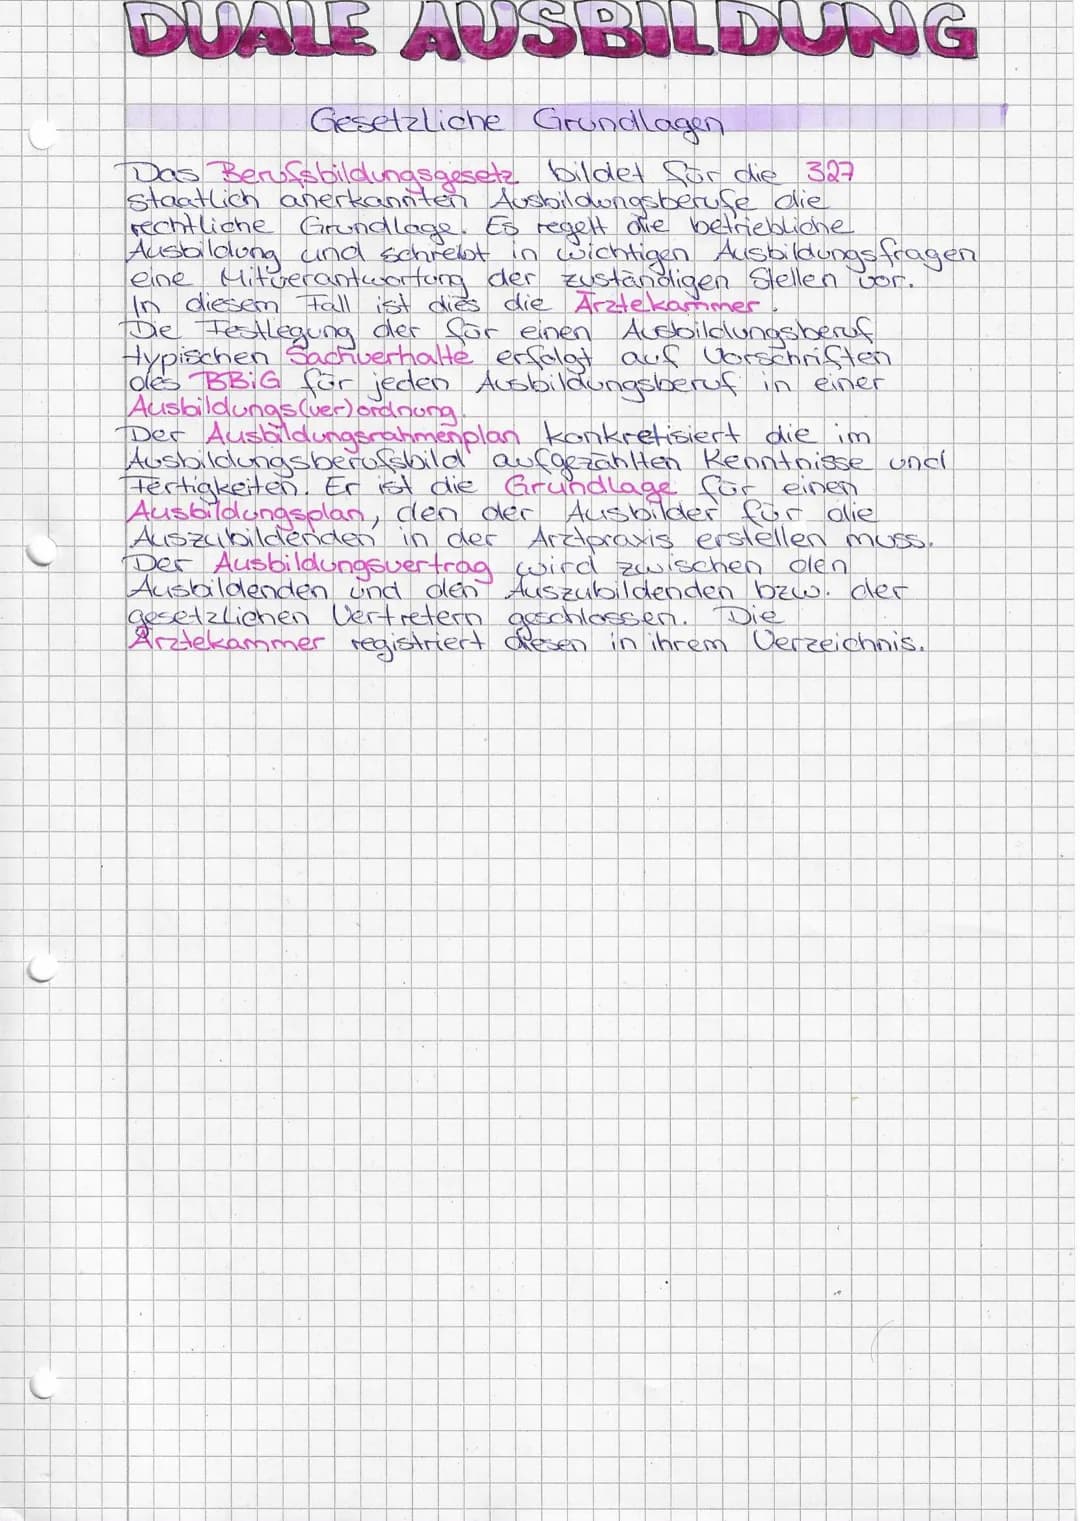 DUALE AUSBILDUNG
Gesetzliche Grundlagen
Das Berufsbildungsgesetz bildet für die 327
staatlich anerkannten Ausbildungsberufe die
rechtliche Grundlage. Es regelt die betriebliche
Ausbildung und schreibt in wichtigen Ausbildungsfragen
eine Mitverantwortung der zuständigen Stellen vor.
In diesem Fall ist dies die Ärztekammer.
Die Festlegung der für einen Ausbildungsberuf
typischen Sachverhalte erfolgt auf Vorschriften
des BBiG für jeden Ausbildungsberuf in einer
Ausbildungs(ver)ordnung.
Der Ausbildungsrahmenplan konkretisiert die im
Ausbildungsberufsbild aufgezählten Kenntnisse und
Fertigkeiten. Er ist die Grundlage für einen
Ausbildungsplan, den der Ausbilder für die
Auszubildenden in der Arztpraxis erstellen muss.
Der Ausbildungsvertrag wird zwischen den
Ausbildenden und den Auszubildenden bzw. der
gesetzlichen Vertretern geschlossen. Die
Ärztekammer registriert diesen in ihrem Verzeichnis.